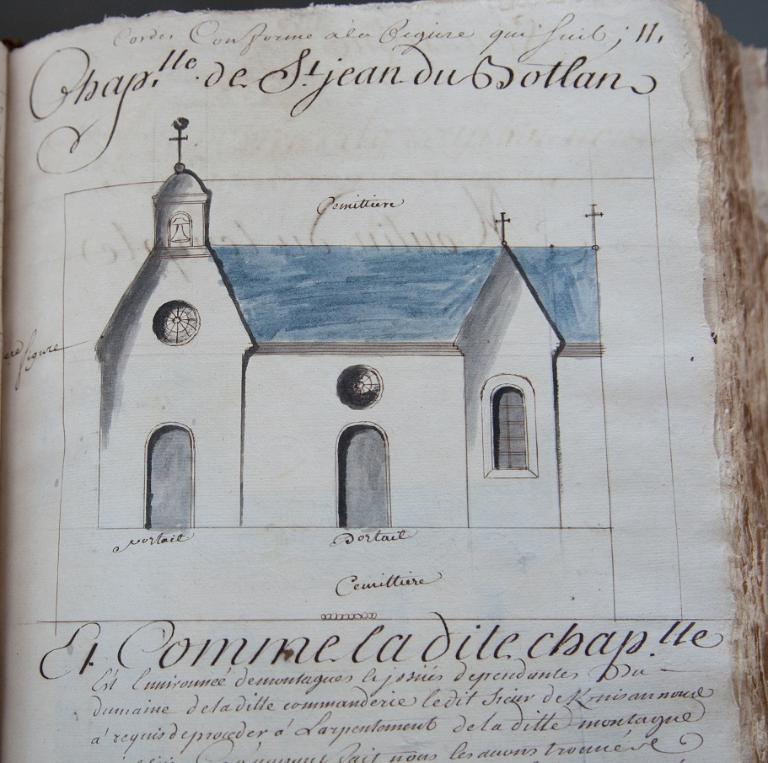 Cordes Conforme a la figure qui suit ; 11.
Chap.lle de St jean du Botlan
Cemittiere
figure
Portail Portail
Cemittiere
Et Comme la dite chap.lle
Est Environnée de montagnes le issües dependantes Du
dumaine de la ditte commanderie le dit sieur de
a requis de proceder a Larpentement de la ditte montagne
fait nous les avons trouvé